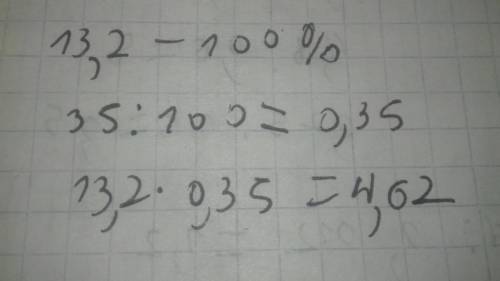 13,2 - 100%
35:100 = 0,35
13,2 · 0,35 = 4,62